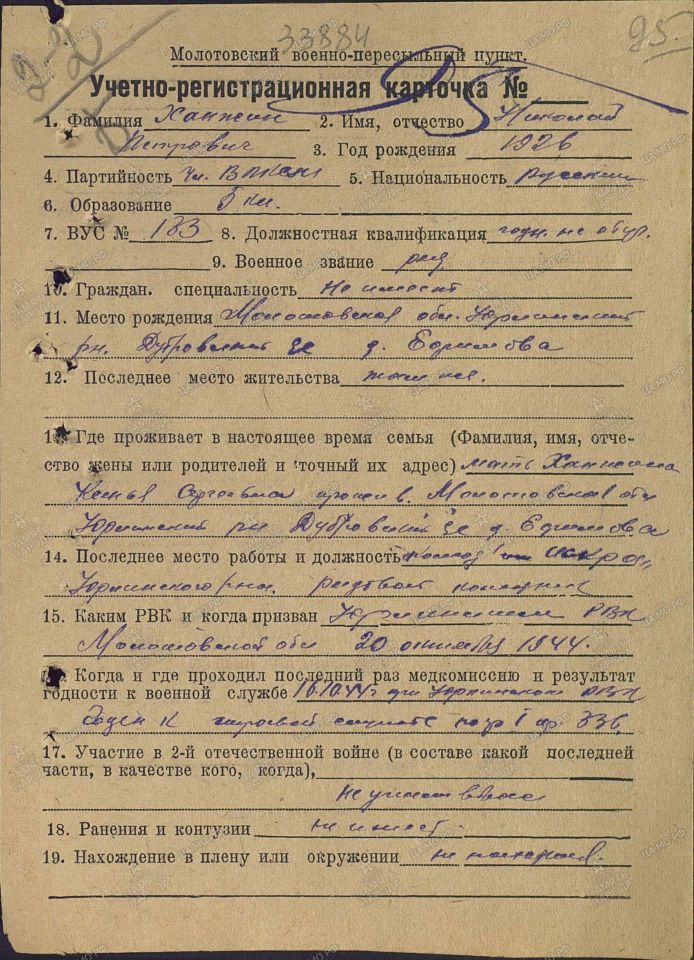 33884
95
2-2
Молотовский военно-пересыльный пункт.
Учетно-регистрационная карточка №
1. Фамилия Ханжин 2. Имя, отчество Николай
Петрович 3. Год рождения 1926
4. Партийность чл. ВЛКСМ 5. Национальность русский
6. Образование 5 кл.
7. ВУС № 133 8. Должностная квалификация годн. не обуч.
9. Военное звание ряд
10. Граждан. специальность не имеет
11. Место рождения Молотовская обл. Юрлинский
рн. Дубровский с д. Ефимова
12. Последнее место жительства
13. Где проживает в настоящее время семья (Фамилия, имя, отче-
ство жены или родителей и точный их адрес) мать Ханжина
Сергеевна прожив. Молотовская обл
Юрлинский рн Дубровский с д. Ефимова
14. Последнее место работы и должность колхоз Искра
Юрлинского рна. рядовой колхозник
15. Каким РВК и когда призван Юрлинским РВК
Молотовской обл 20 октября 1944.
16. Когда и где проходил последний раз медкомиссию и результат
годности к военной службе 16.10.44г при Юрлинском РВК
Годен к строевой службе по гр I пр. 336
17. Участие в 2-й отечественной войне (в составе какой последней
части, в качестве кого, когда),
не участвовал
18. Ранения и контузии не имеет
19. Нахождение в плену или окружении не находился.